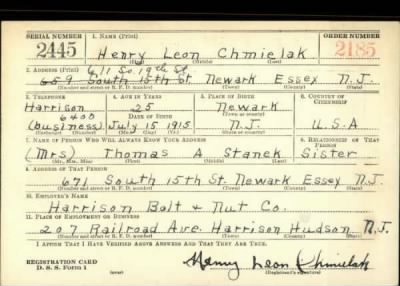 SERIAL NUMBER
1. NAME (Print)
ORDER NUMBER
2445
Henry Leon Chmielak
2185
(First) (Middle) (Last)
2. ADDRESS (Print)
611 So 19th St
659 South 15th St. Newark Essex N.J.
(Number and street or R. F. D. number) (Town) (County) (State)
3. TELEPHONE
4. AGE IN YEARS
5. PLACE OF BIRTH
6. COUNTRY OF CITIZENSHIP
Harrison
25
Newark
6400
DATE OF BIRTH
(Town or county)
(business) July 15 1915
N.J.
U.S.A
(Mo.) (Day) (Yr.)
(State or country)
7. NAME OF PERSON WHO WILL ALWAYS KNOW YOUR ADDRESS
8. RELATIONSHIP OF THAT PERSON
(Mrs) Thomas A Stanek Sister
(Mr., Mrs., Miss) (First) (Middle) (Last)
9. ADDRESS OF THAT PERSON
671 South 15th St. Newark Essex N.J.
(Number and street or R. F. D. number) (Town) (County) (State)
10. EMPLOYER'S NAME
Harrison Bolt & Nut Co.
11. PLACE OF EMPLOYMENT OR BUSINESS
207 Railroad Ave. Harrison Hudson N.J.
(Number and street or R. F. D. number) (Town) (County) (State)
I AFFIRM THAT I HAVE VERIFIED ABOVE ANSWERS AND THAT THEY ARE TRUE.
REGISTRATION CARD
D. S. S. Form 1
(over)
Henry Leon Chmielak
(Registrant's signature)